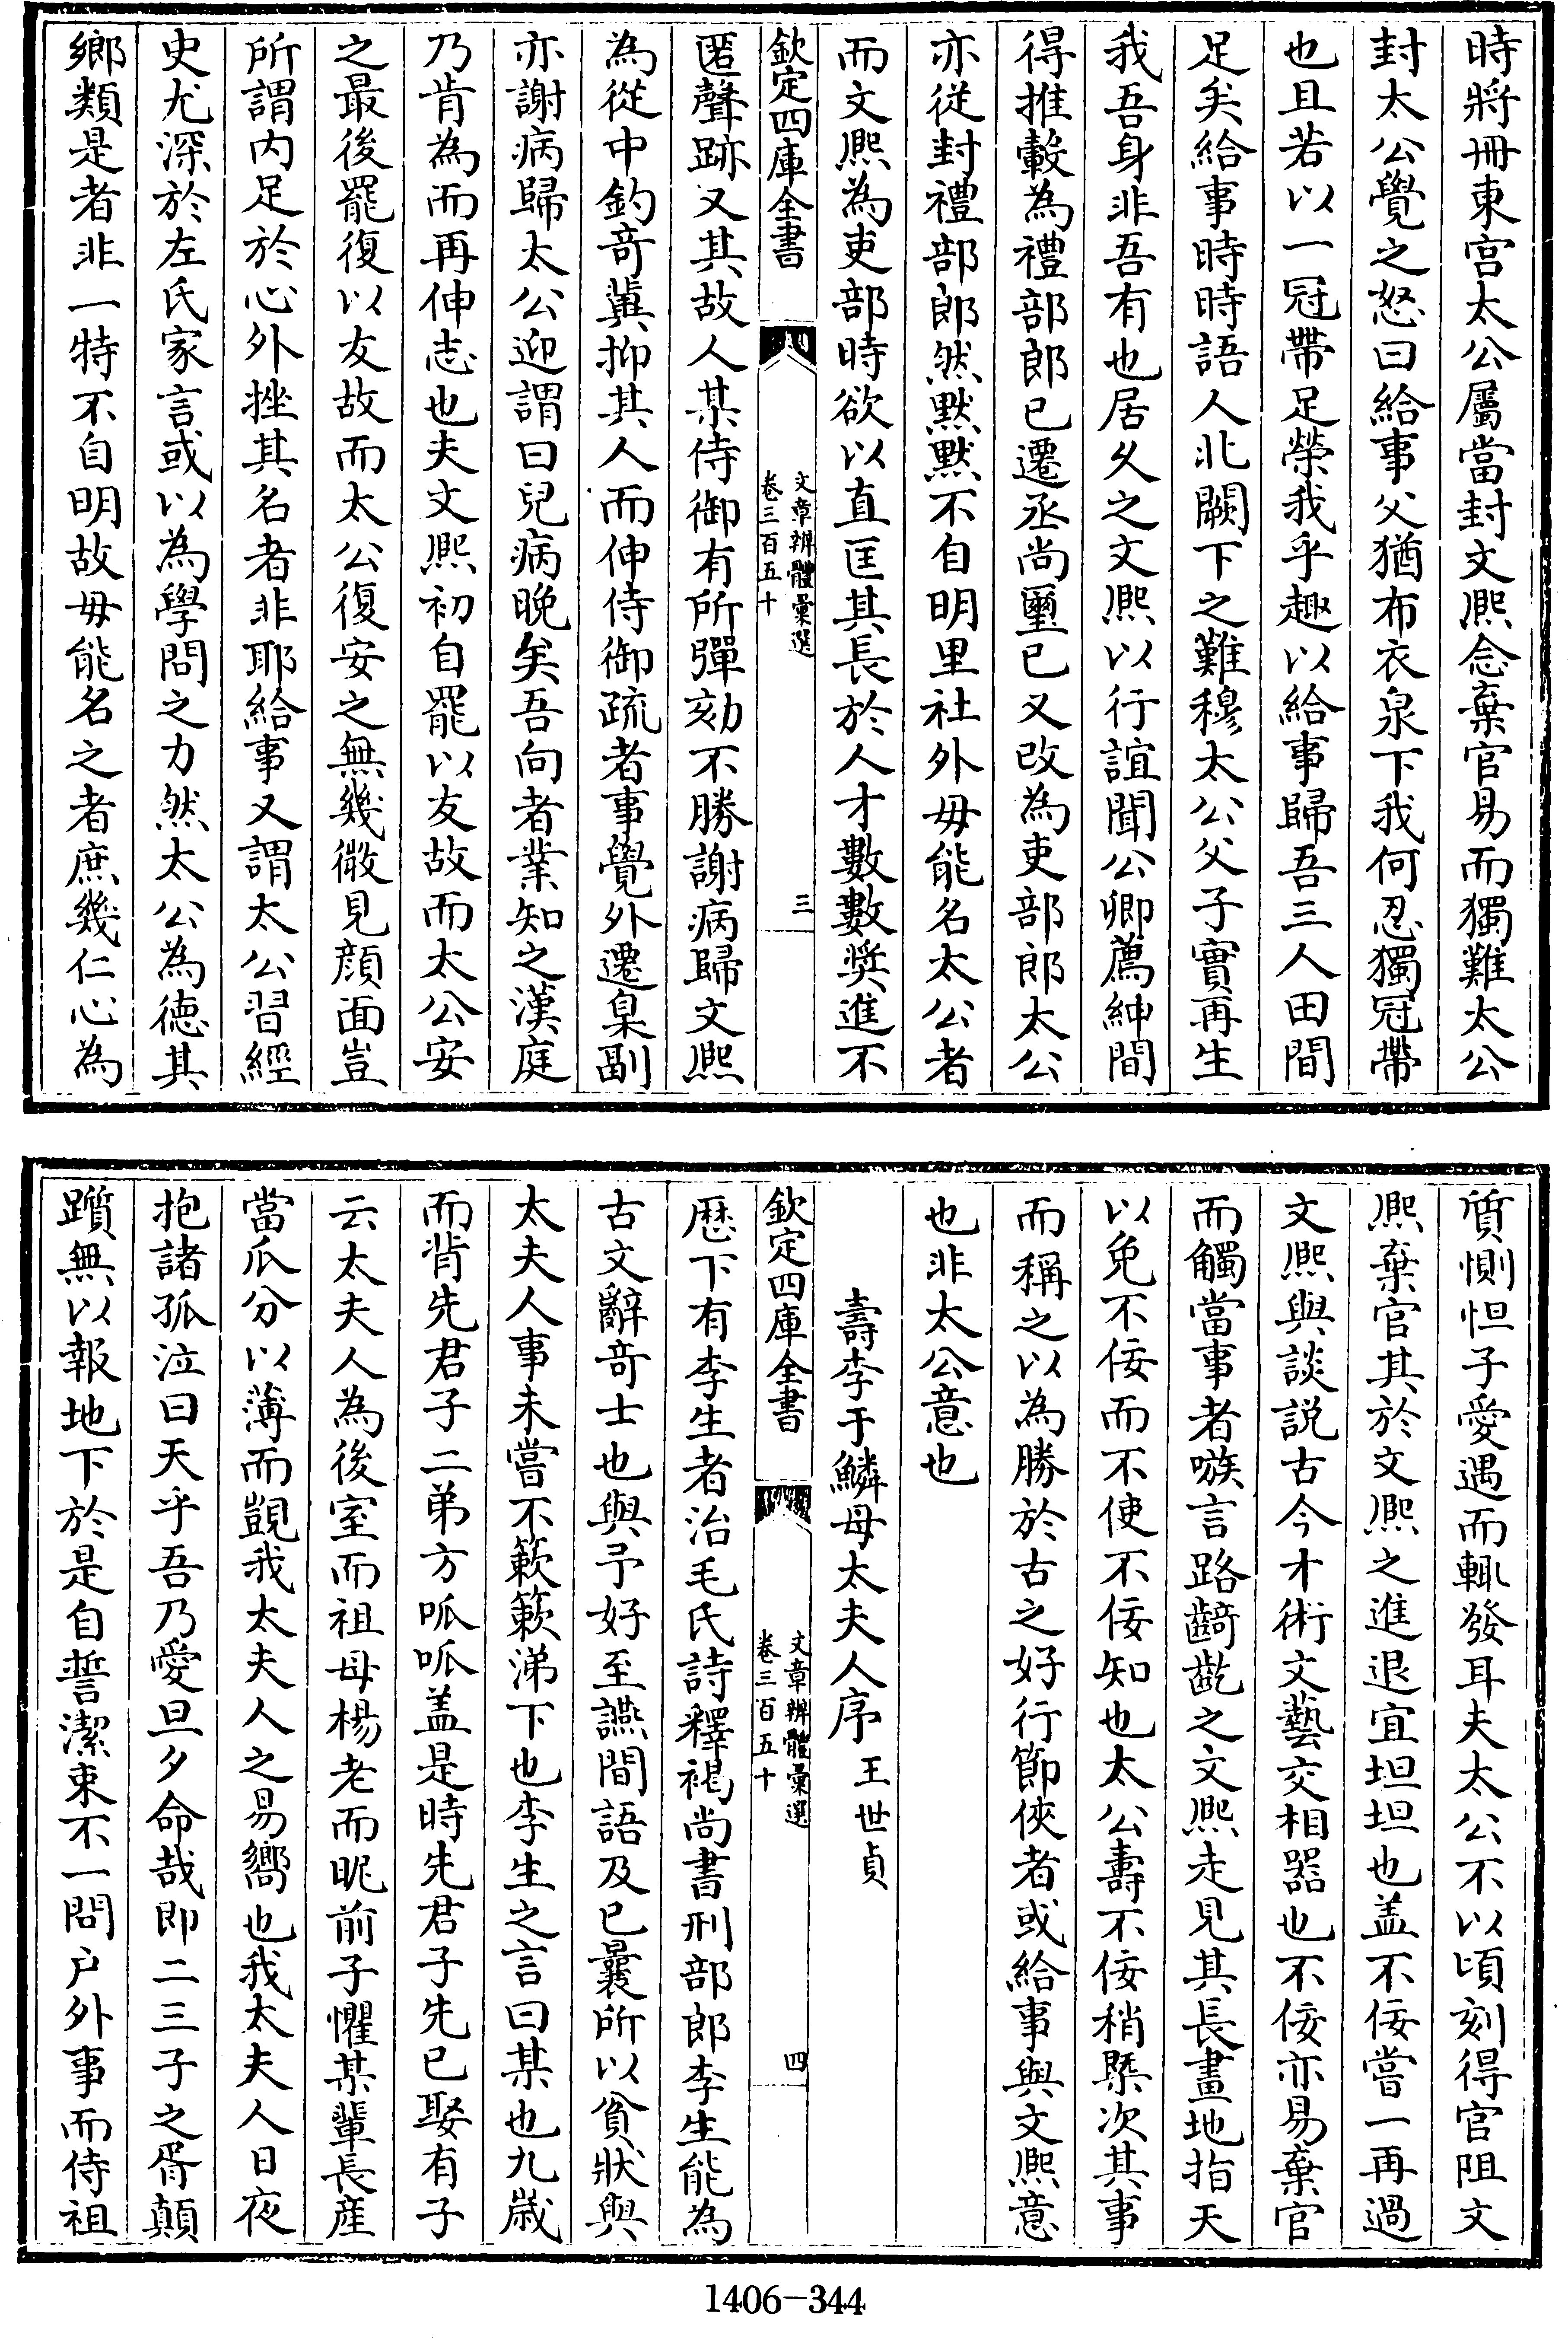 時將冊東宮太公屬當封文熈念棄官易而獨難太公
封太公覺之怒曰給事父猶布衣泉下我何忍獨冠帶
也且若以一冠帶足榮我乎趣以給事歸吾三人田間
足矣給事時時語人北闕下之難穆太公父子實再生
我吾身非吾有也居久之文熈以行誼聞公卿薦紳間
得推轂為禮部郎已遷丞尚璽已又改為吏部郎太公
亦從封禮部郎然默默不自明里社外毋能名太公者
而文熈為吏部時欲以直匡其長於人才數數奬進不
欽定四庫全書
文章辨體彚選
卷三百五十
三
匿聲跡又其故人某侍御有所彈劾不勝謝病歸文熈
為從中釣竒冀抑其人而伸侍御疏者事覺外遷臬副
亦謝病歸太公迎謂曰兒病晚矣吾向者業知之漢庭
乃肯為而再伸志也夫文熈初自罷以友故而太公安
之最後罷復以友故而太公復安之無幾微見顔面豈
所謂内足於心外挫其名者非耶給事又謂太公習經
史尤深於左氏家言或以為學問之力然太公為徳其
鄉類是者非一特不自明故毋能名之者庶幾仁心為
質惻怛子愛遇而輒發耳夫太公不以頃刻得官阻文
熈棄官其於文熈之進退宜坦坦也盖不佞嘗一再過
文熈與談説古今才術文藝交相器也不佞亦易棄官
而觸當事者嗾言路齮齕之文熈走見其長畫地指天
以免不佞而不使不佞知也太公壽不佞稍槩次其事
而稱之以為勝於古之好行節俠者或給事與文熈意
也非太公意也
壽李于鱗母太夫人序 王世貞
欽定四庫全書
文章辨體彚選
卷三百五十
四
厯下有李生者治毛氏詩釋褐尚書刑部郎李生能為
古文辭竒士也與予好至讌間語及已曩所以貧狀與
太夫人事未嘗不簌簌涕下也李生之言曰某也九嵗
而背先君子二弟方呱呱盖是時先君子先已娶有子
云太夫人為後室而祖母楊老而昵前子懼某輩長産
當瓜分以薄而覬我太夫人之易嚮也我太夫人日夜
抱諸孤泣曰天乎吾乃愛旦夕命哉即二三子之胥顛
躓無以報地下於是自誓潔束不一問户外事而侍祖
1406-344